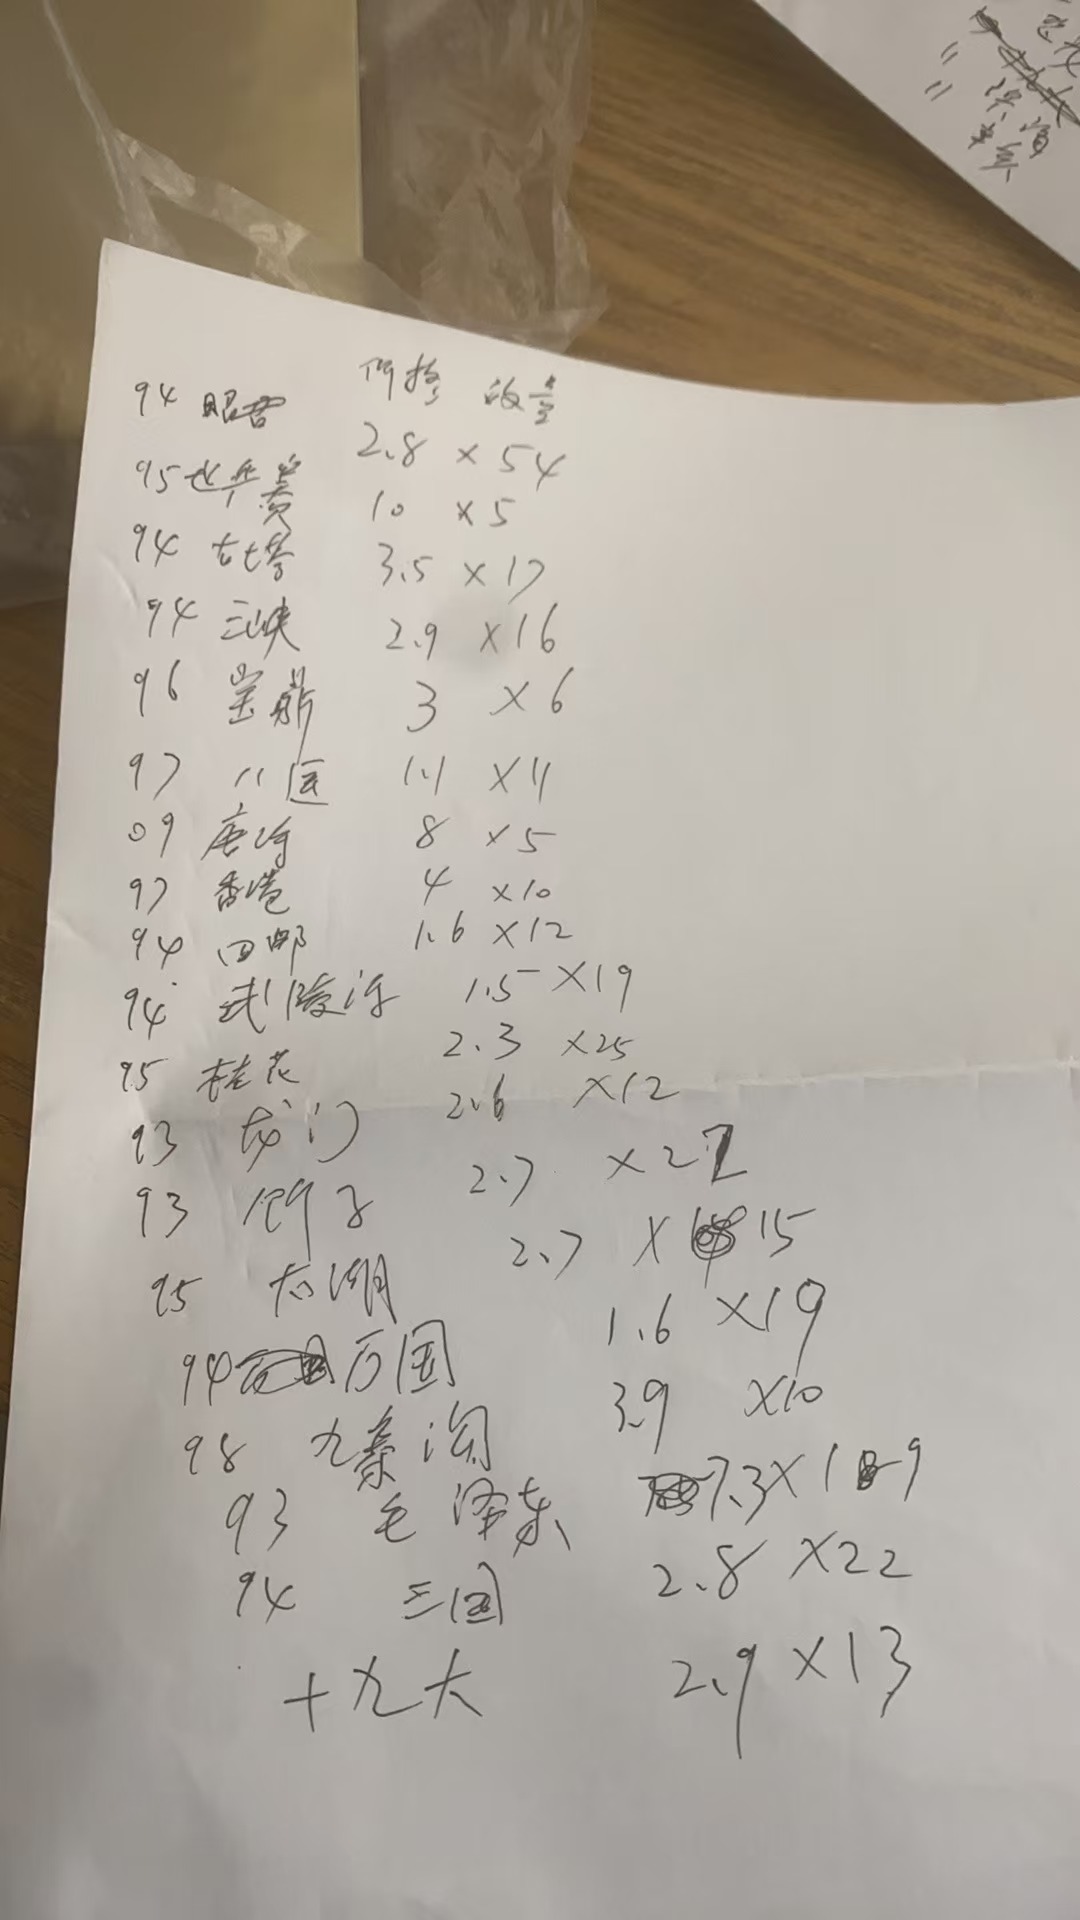 价格 数量
94 昭君 2.8 × 54
95 世乒赛 10 ×5
94 古塔 3.5 ×17
94 三峡 2.9 ×16
96 宝鼎 3 ×6
97 八运 1.1 ×11
09 唐诗 8 ×5
97 香港 4 ×10
94 邮 1.6 ×12
94 武陵源 1.5 ×19
95 桂花 2.3 ×25
93 龙门 2.6 ×12
93 竹子 2.7 ×22
95 太湖 2.7 ×15
94 万国 1.6 ×19
98 九寨沟 3.9 ×10
93 毛泽东 7.3×19
94 三国 2.8 ×22
十九大 2.9 ×13